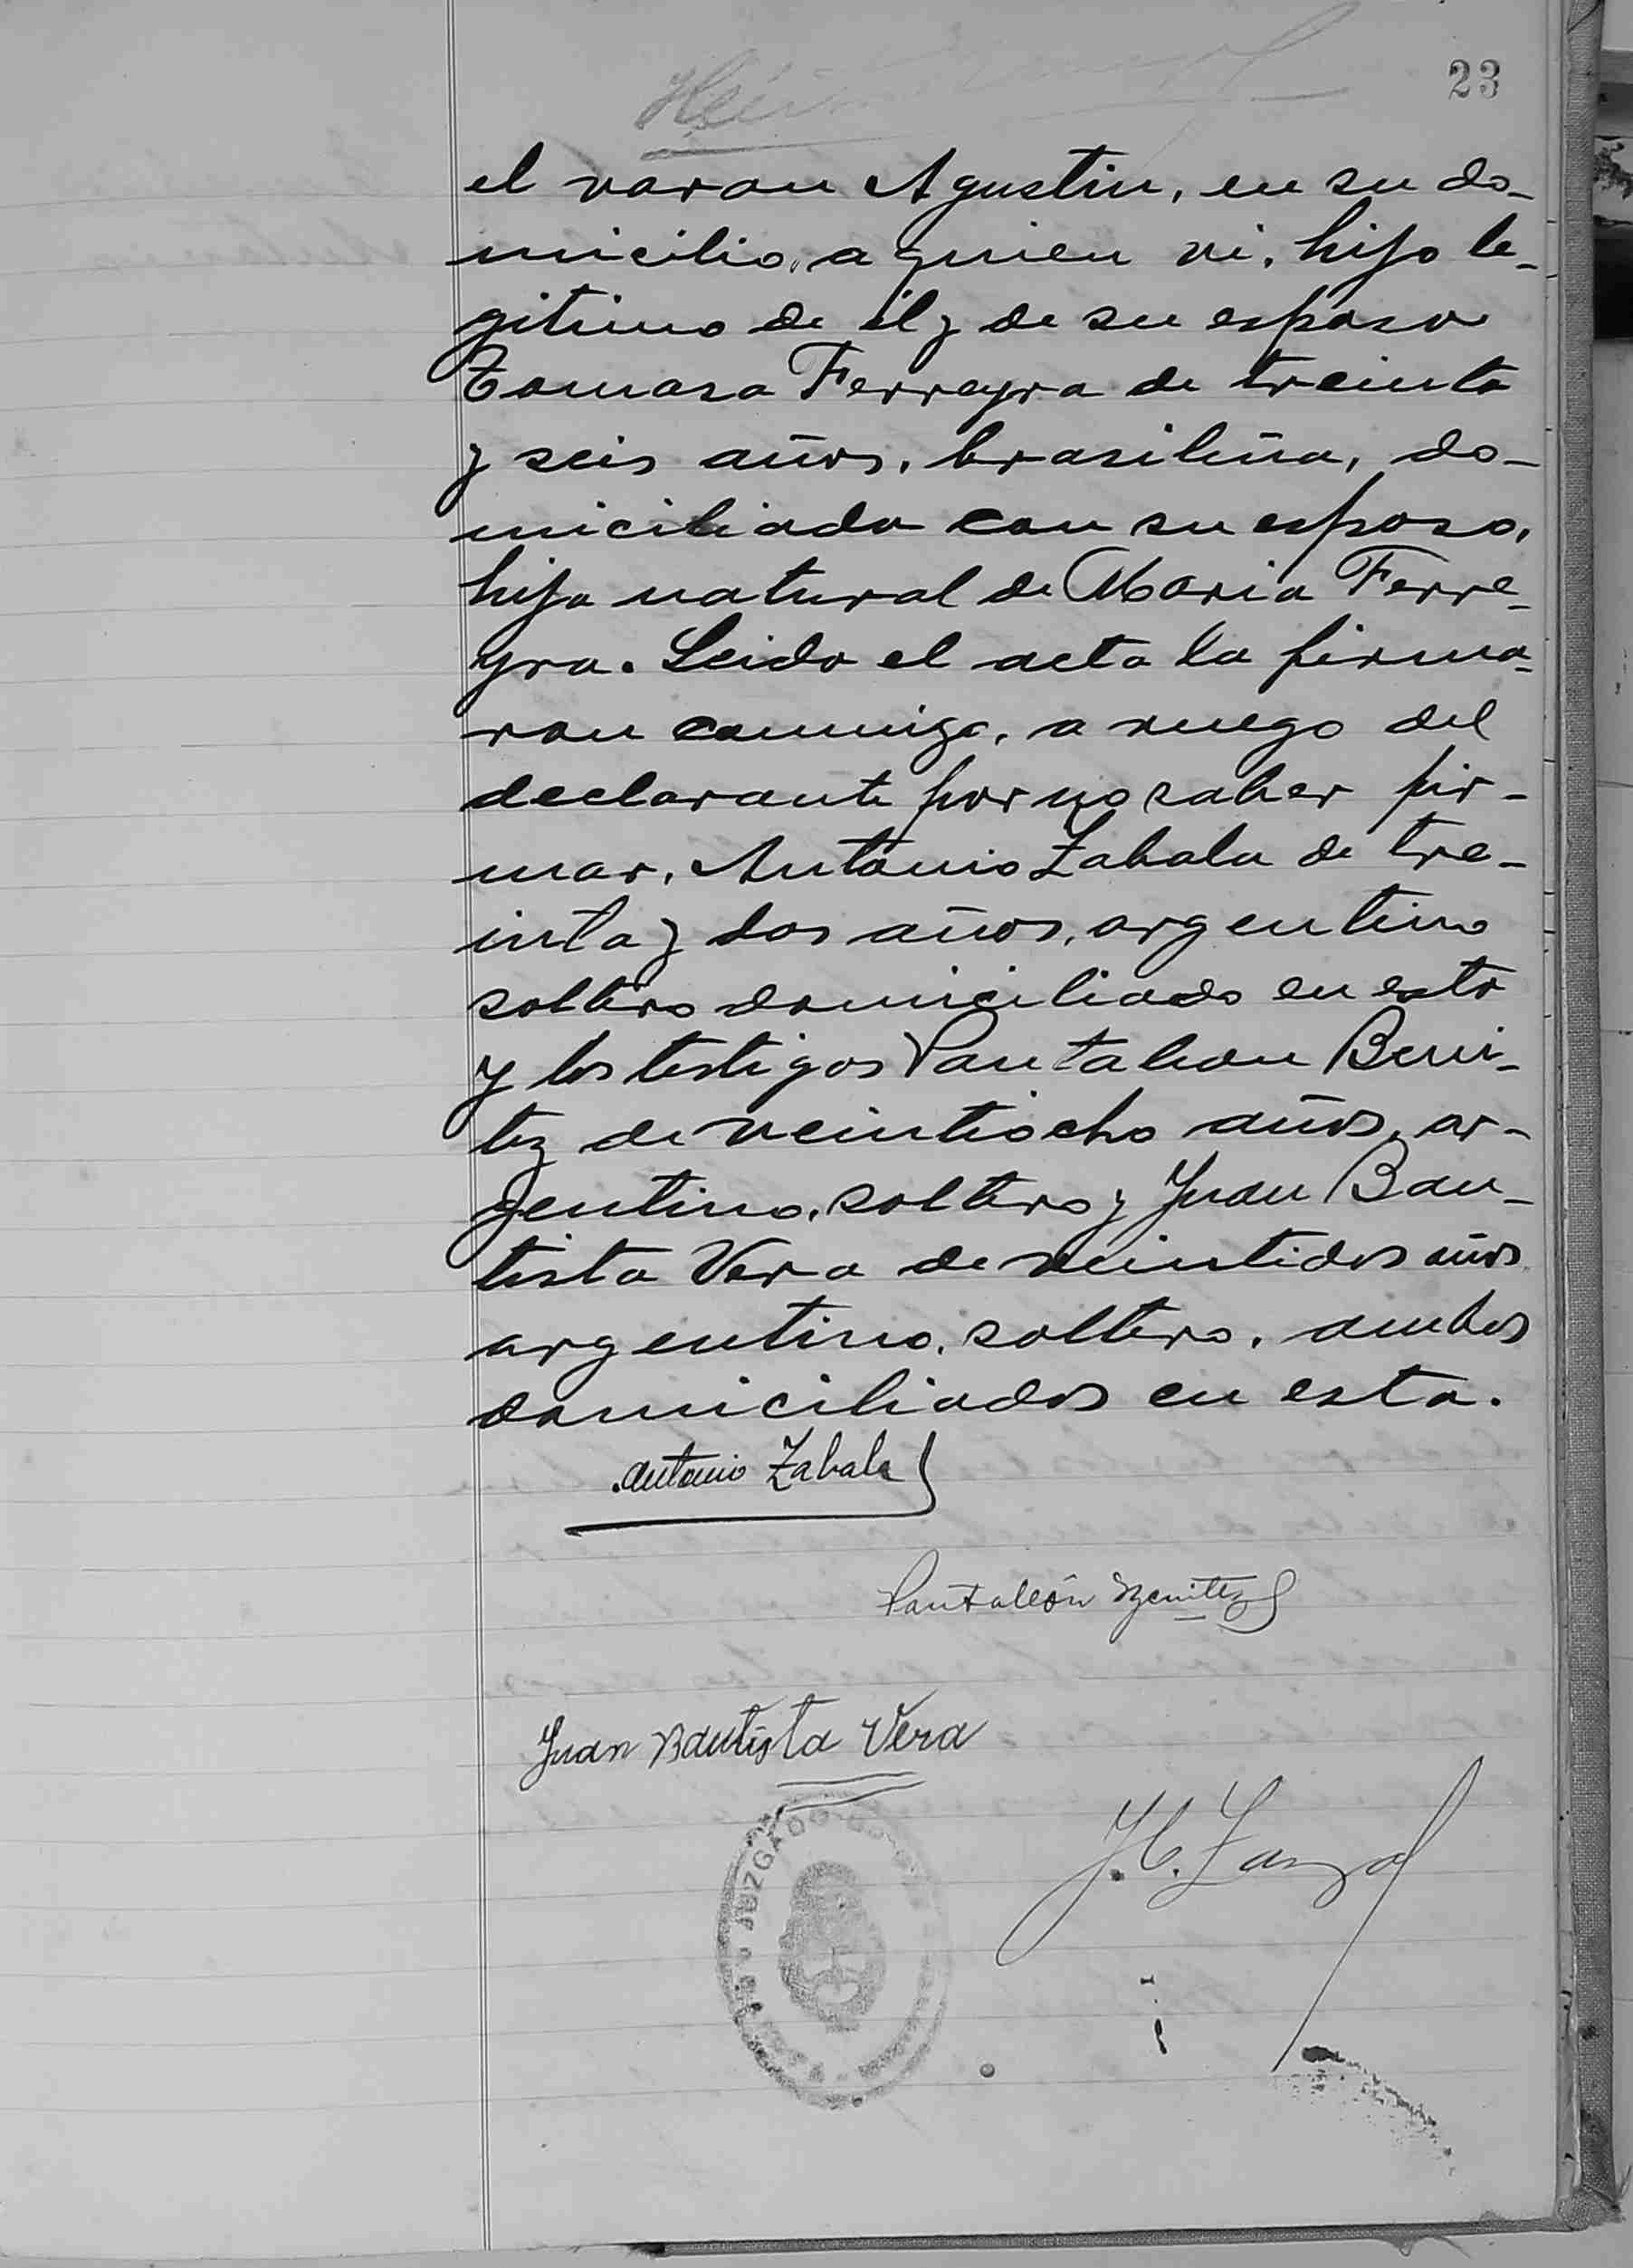 23
el varon Agustin, en su do-
micilio, a quien vi, hijo le-
gitimo de él y de su esposa
Tomasa Ferreyra de treinta
y seis años, brasileña, do-
miciliada con su esposo,
hija natural de Maria Ferre-
yra. Leida el acta la firma-
ron conmigo, a ruego del
declarante por no saber fir-
mar, Antonio Zabala de tre-
inta y dos años, argentino
soltero domiciliado en esta
y los testigos Pantaleon Beni-
tez de veintiocho años, ar-
gentino, soltero y Juan Bau-
tista Vera de veintidos años
argentino, soltero, ambos
domiciliados en esta.
Antonio Zabala
Pantaleón Benitez
Juan Bautista Vera
JUZGADO